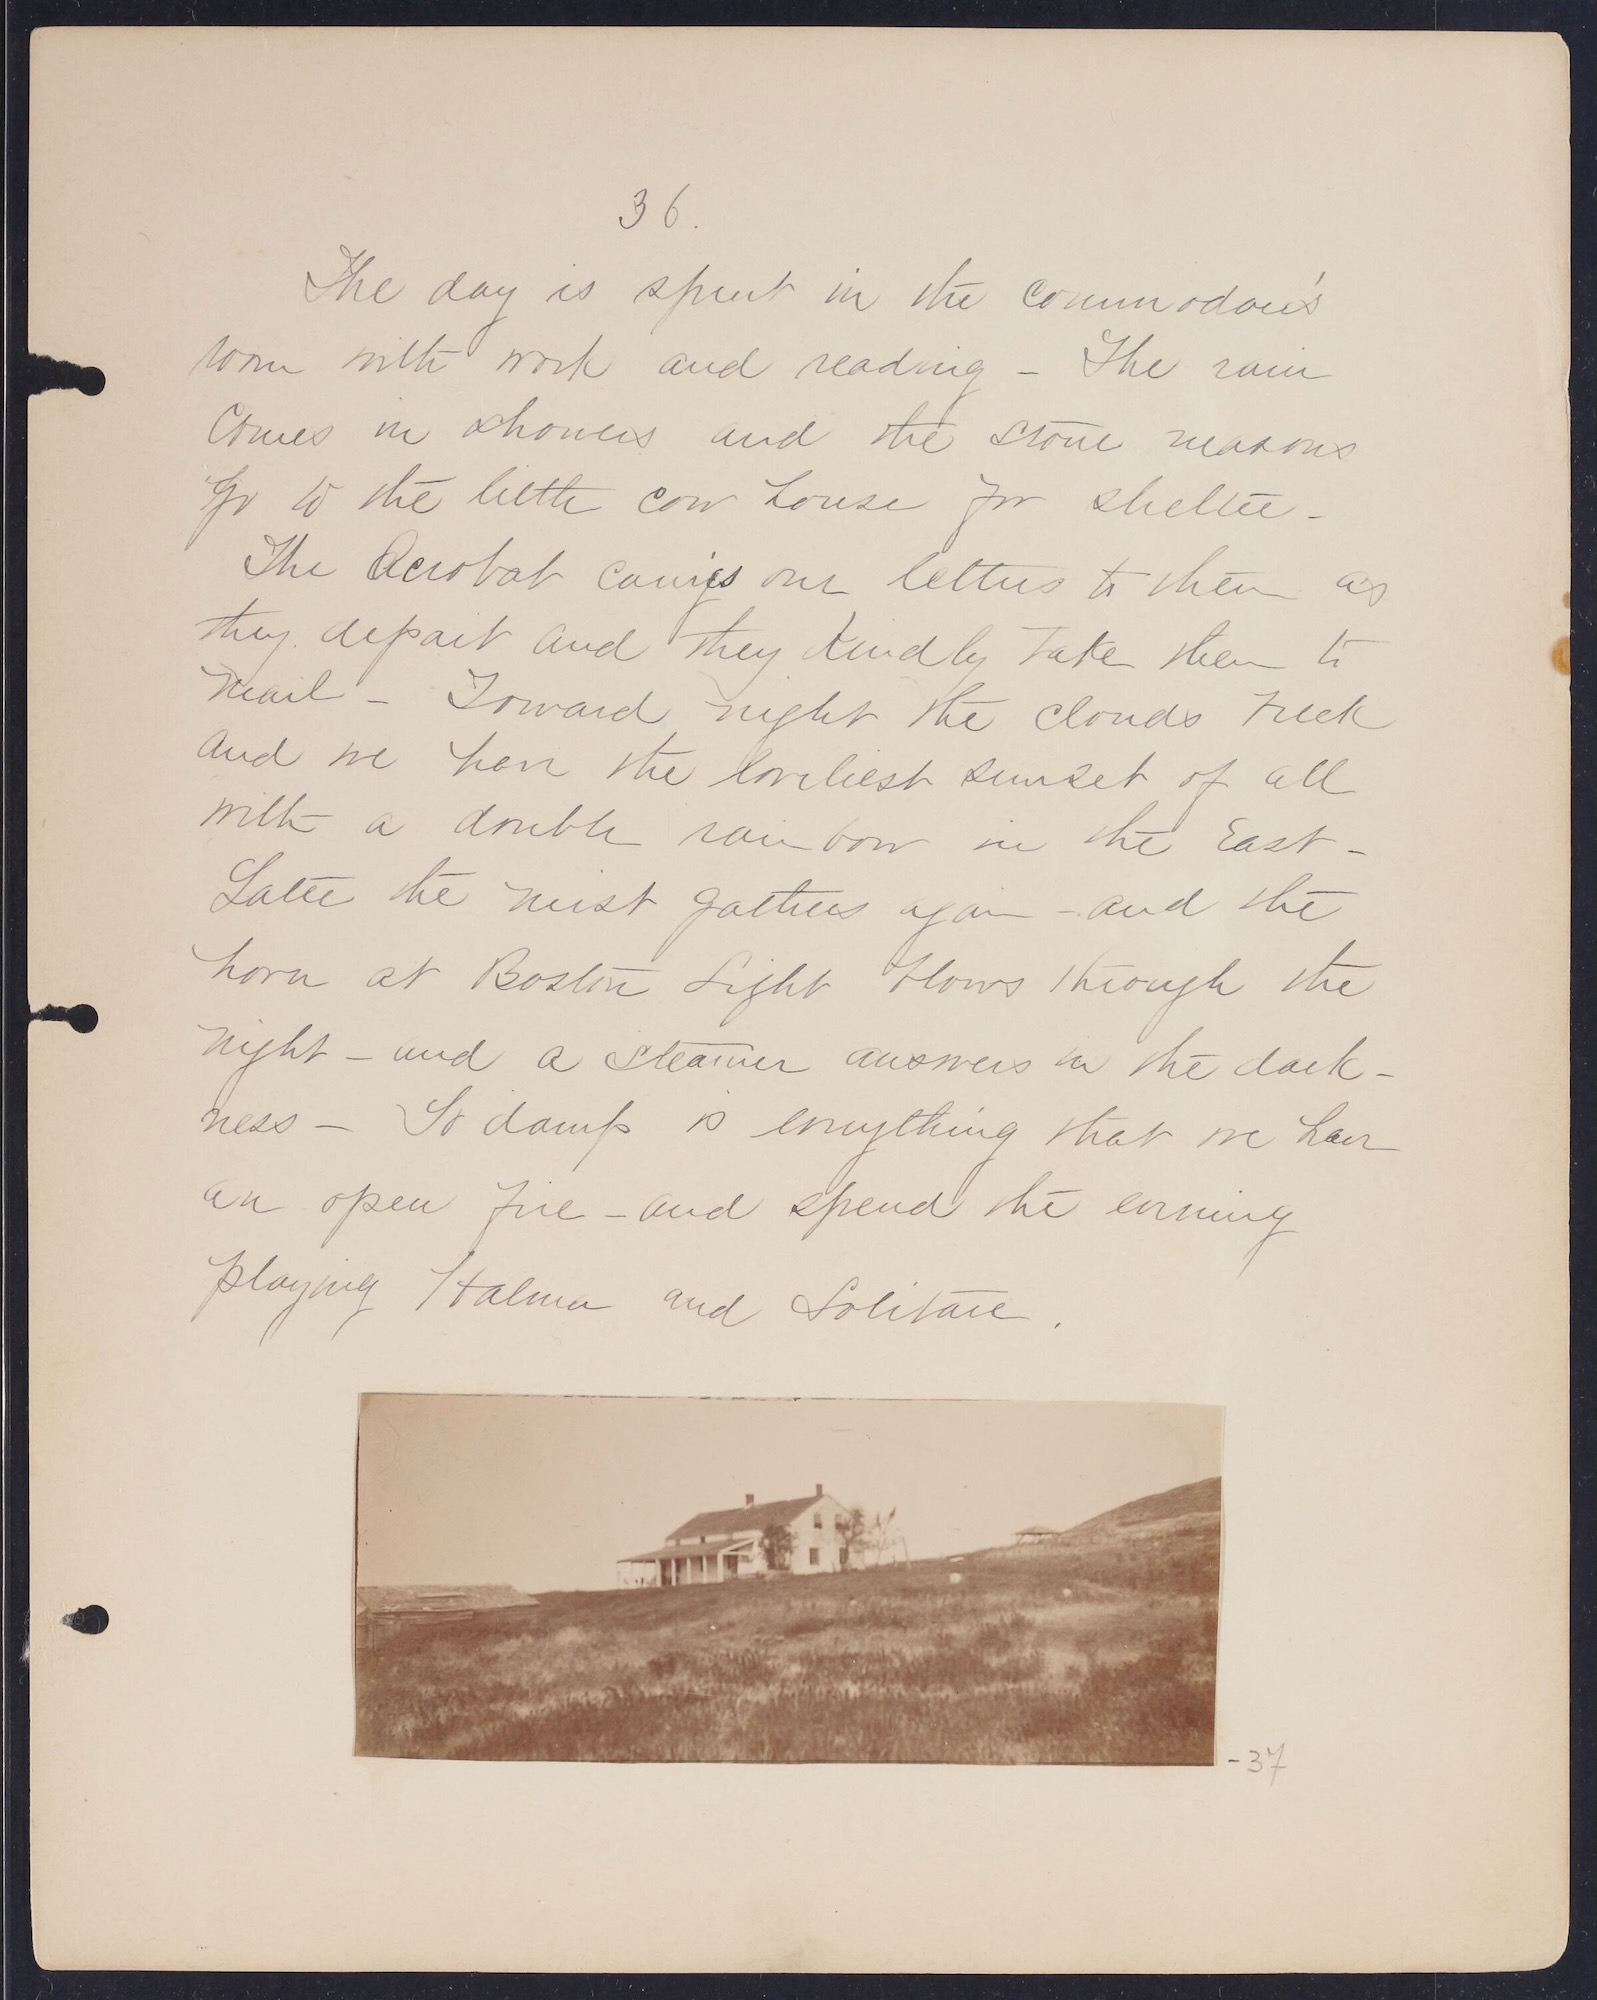 36.
The day is spent in the Commodore's
room with work and reading – The rain
comes in showers and the stone masons
go to the little cow house for shelter –
The Acrobat carries our letters to them as
they depart and they kindly take them to
mail – Toward night the clouds break
and we have the loveliest sunset of all
with a double rainbow in the East –
Later the mist gathers again – and the
horn at Boston Light blows through the
night – and a steamer answers in the dark-
ness – So damp is everything that we have
an open fire – and spend the evening
playing Halma and Solitaire.
-37